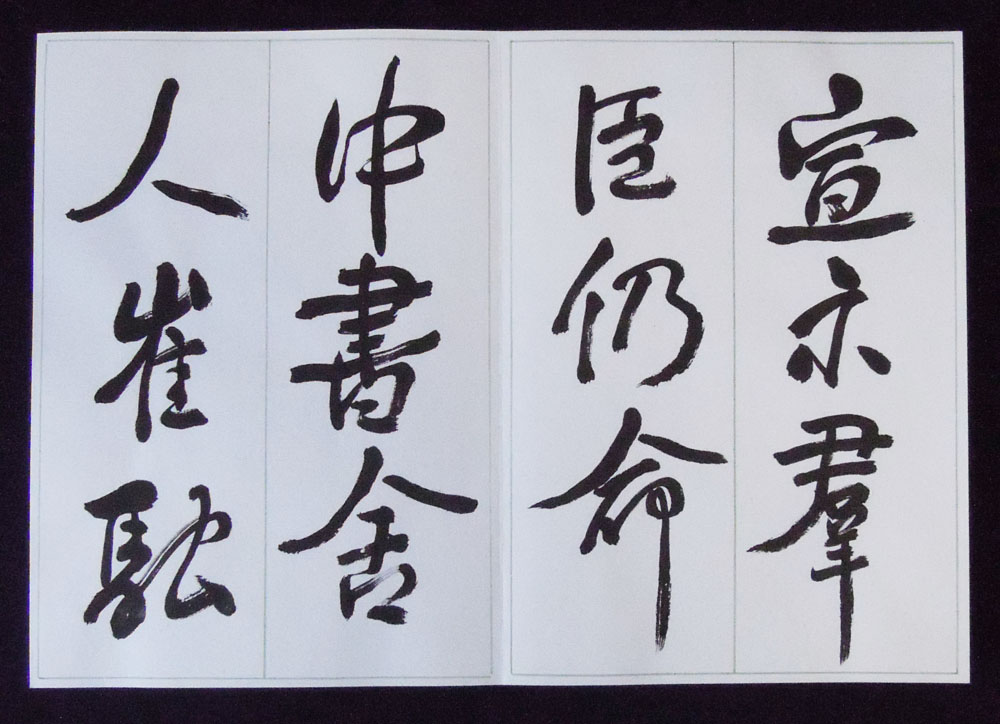 宣示羣
臣仍命
中書舍
人崔融